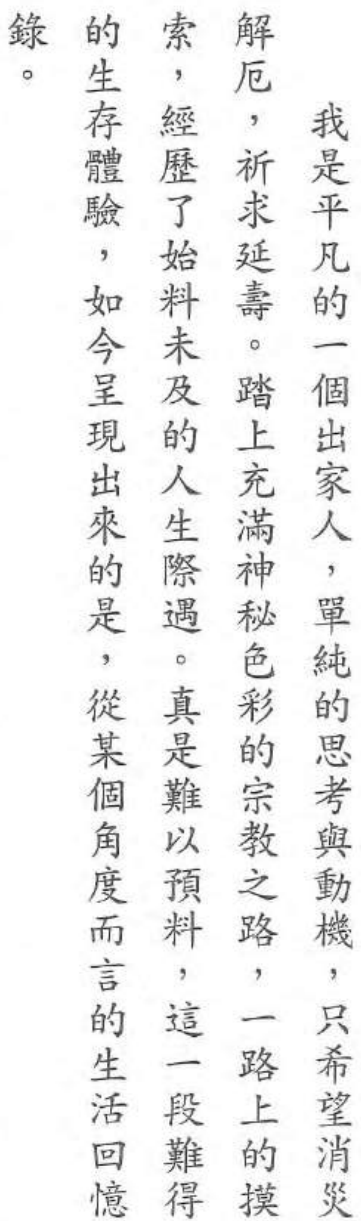 我是平凡的一個出家人，單純的思考與動機，只希望消災
解厄，祈求延壽。踏上充滿神秘色彩的宗教之路，一路上的摸
索，經歷了始料未及的人生際遇。真是難以預料，這一段難得
的生存體驗，如今呈現出來的是，從某個角度而言的生活回憶
錄。